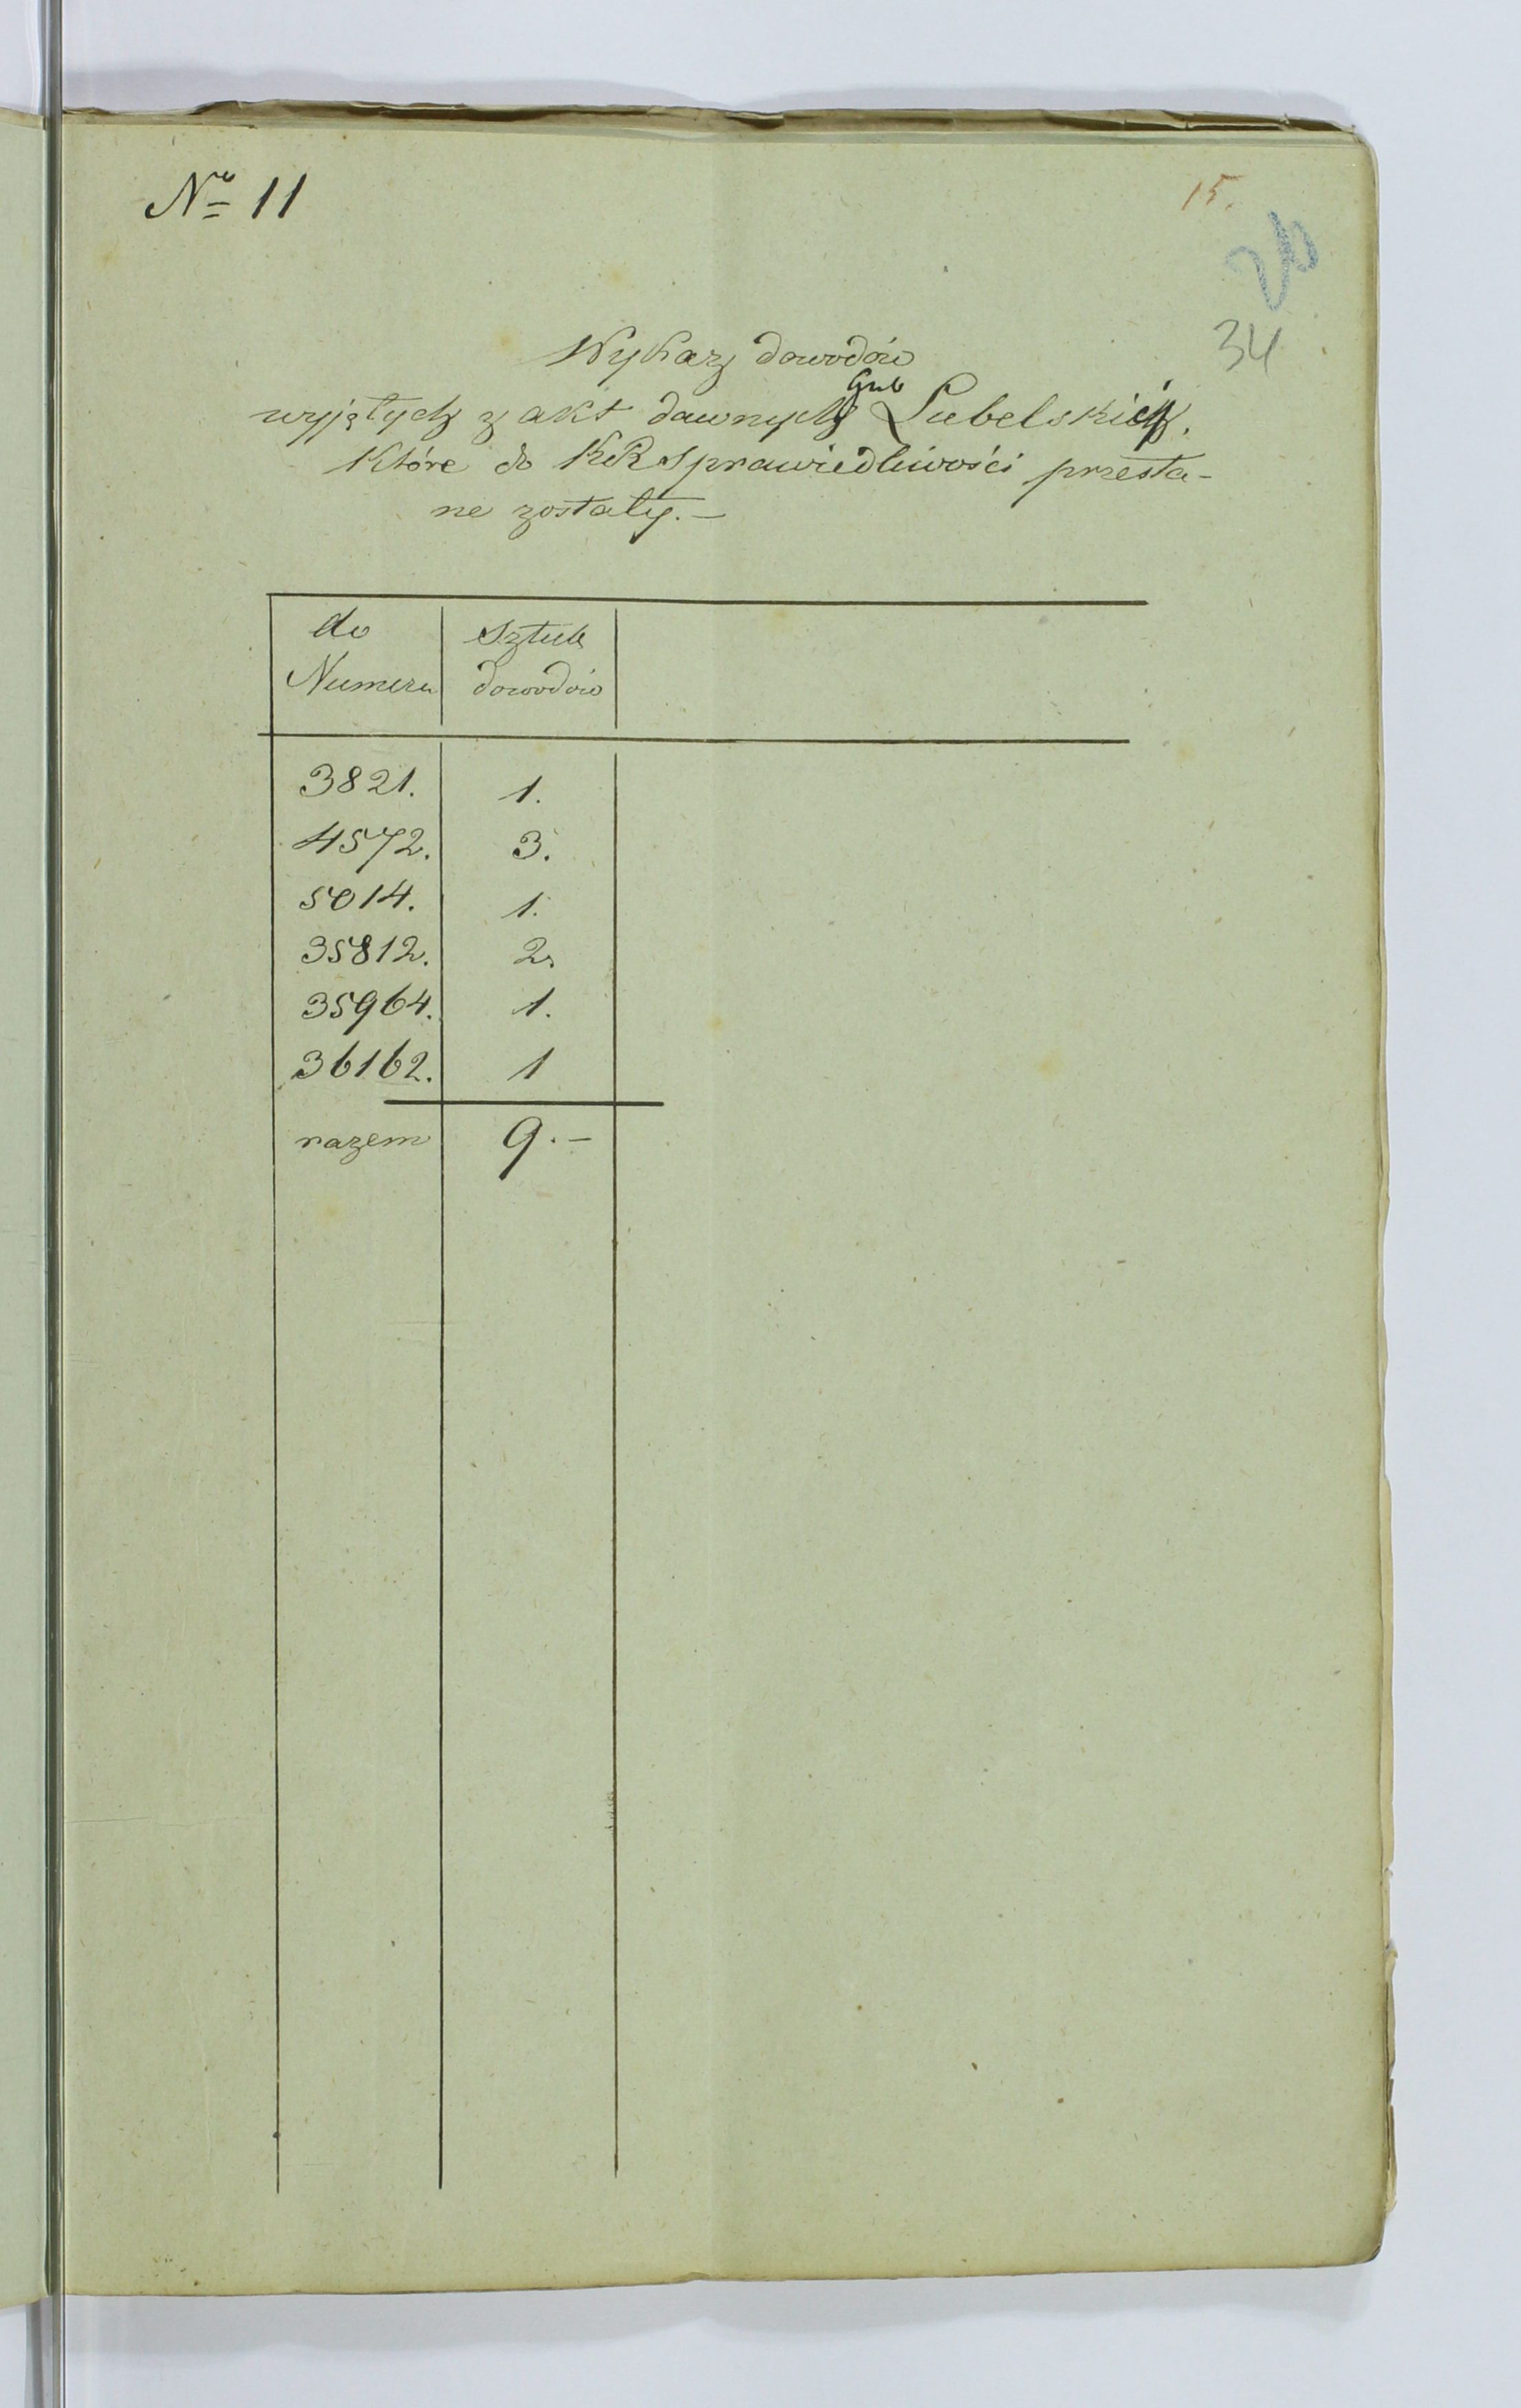 No 11
15.
26
34
Wykaz dowodów
wyjętych z akt dawnych Gub Lubelskiéj.
które do KRSprawiedliwości przesła-
ne zostały. —
do Numeru | Sztuk dowodów
3821. | 1.
4572. | 3.
5014. | 1.
35812. | 2.
35964. | 1.
36162. | 1
razem | 9. —